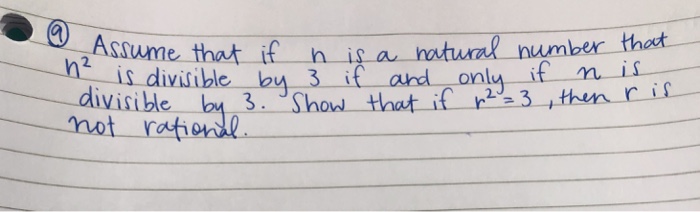 ⑨ Assume that if n is a natural number that
n² is divisible by 3 if and only if n is
divisible by 3. Show that if r² = 3, then r is
not rational.